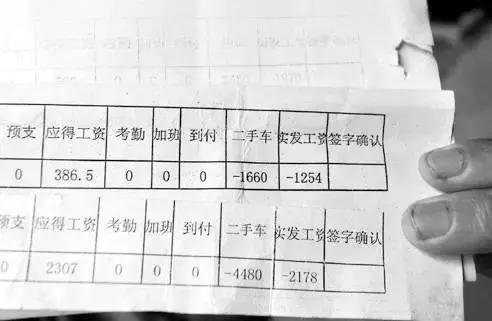 预支 应得工资 考勤 加班 到付 二手车 实发工资 签字确认
0 386.5 0 0 0 -1660 -1254
预支 应得工资 考勤 加班 到付 二手车 实发工资 签字确认
0 2307 0 0 0 -4480 -2178